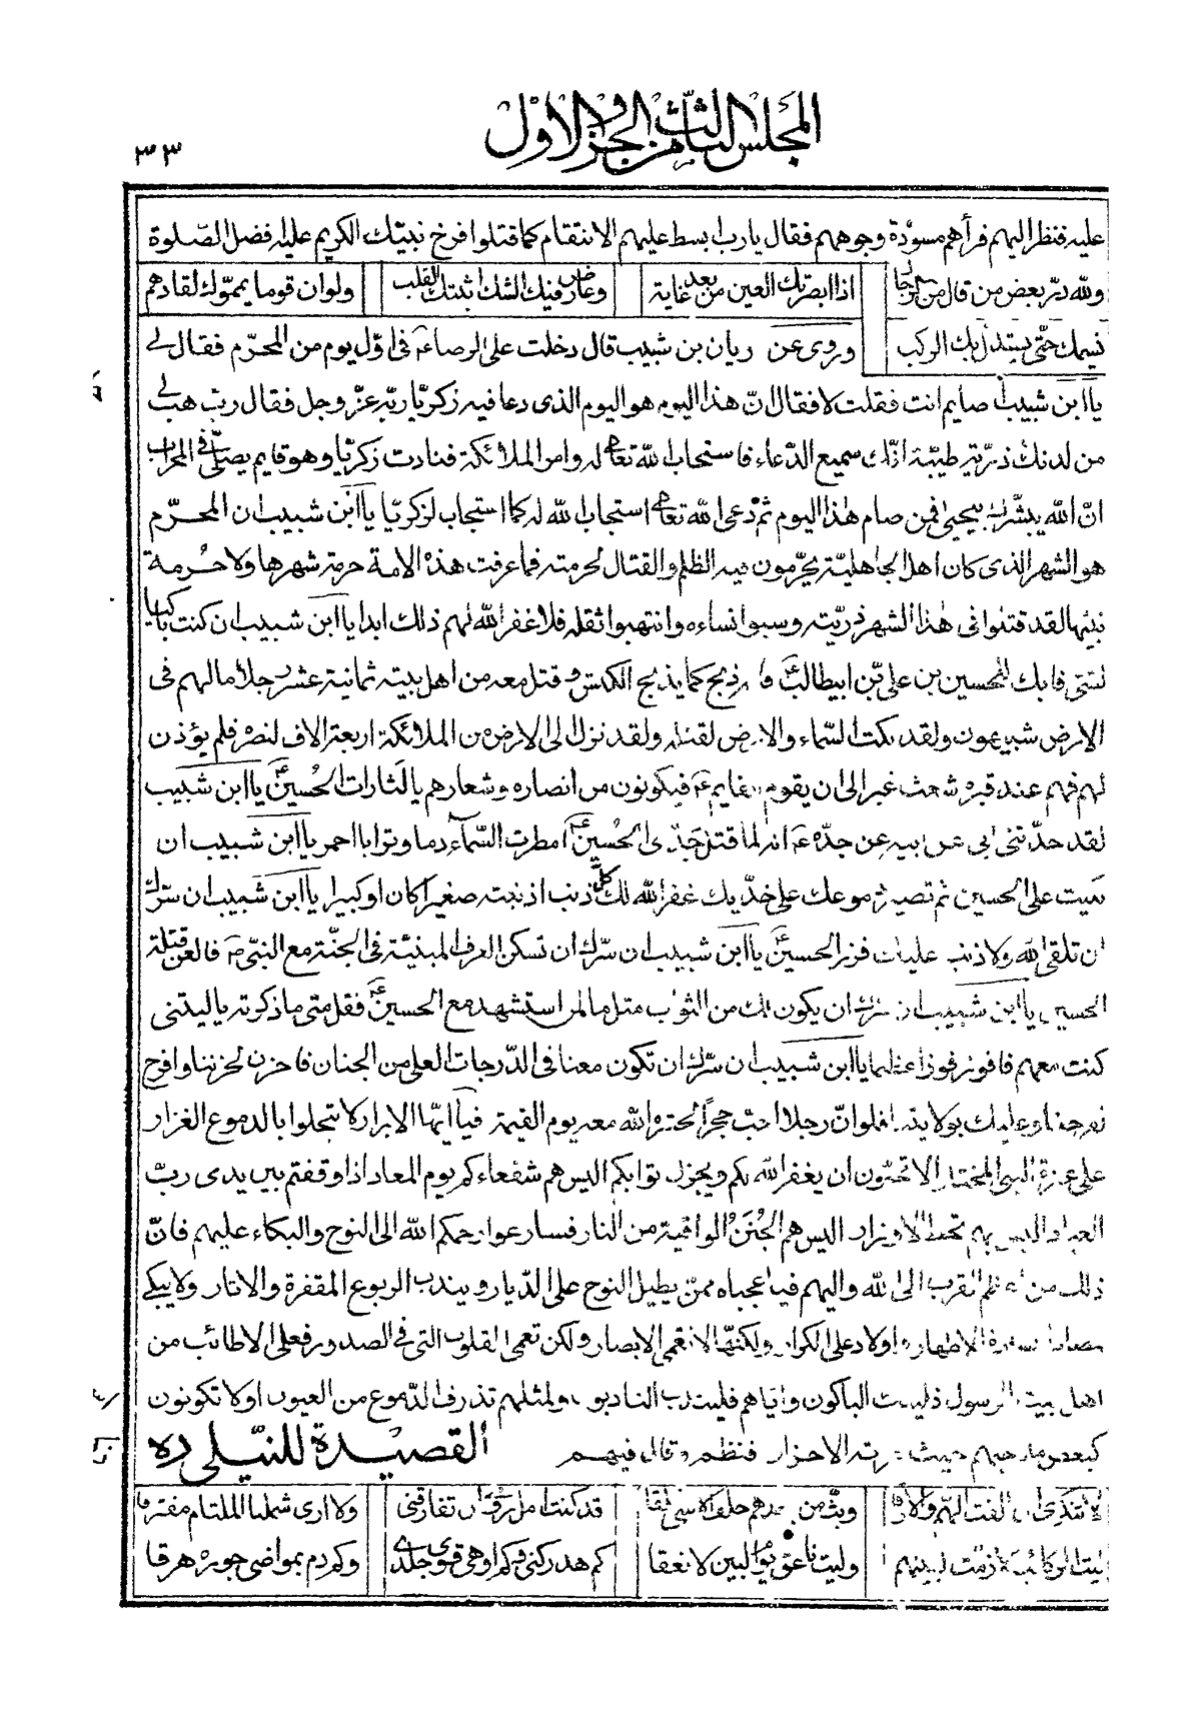 المجلس الثالث من الجزء الاول
٣٣
عليه فنظر اليهم فرأهم مسوّدة وجوههم فقال يا رب ابسط عليهم الانتقام كما قتلوا فرخ نبيّك الكريم عليه فضل الصّلوة
ولله درّ بعض من قال من الرجال
اذا ابصرتك العين من بعد غاية
وعارض فيك الشك اثبتك القلب
ولو ان قوما يمموّك لقادهم
نسيمك حتّى يستدل بك الركب
وروى عن ريان بن شبيب قال دخلت على الرضاء ع في اوّل يوم من المحرّم فقال لي
يا ابن شبيب اصايم انت فقلت لا فقال انّ هذا اليوم هو اليوم الذى دعا فيه زكريّا ربّه عزّ وجل فقال ربّ هب لي
من لدنك ذرّية طيّبة انّك سميع الدّعاء فاستجاب الله تعالى له وامر الملائكة فنادت زكريّا وهو قايم يصلّى في المحراب
انّ الله يبشّرك بيحيى فمن صام هذا اليوم ثم دعى الله تعالى استجاب الله له كما استجاب لزكريّا يا ابن شبيب ان المحرّم
هو الشهر الذى كان اهل الجاهليّة يحرّمون فيه الظلم والقتال لحرمته فما عرفت هذه الامة حرمة شهرها ولا حُرمة
نبيّها لقد قتلوا في هذا الشهر ذرّيته وسبوا نساءه وانتهبوا ثقله فلا غفر الله لهم ذلك ابدا يا ابن شبيب ان كنت باكيا
لشئ فابك للحسين بن على بن ابيطالب ع فا ذبح كما يذبح الكبش وقتل معه من اهل بيته ثمانية عشر رجلا ما لهم في
الارض شبيهون ولقد بكت السّماء والارض لقتله ولقد نزل الى الارض من الملائكة اربعة الاف لنصره فلم يؤذن
لهم فهم عند قبره شعث غبر الى ان يقوم القايم ع فيكونون من انصاره وشعارهم يا لثارات الحُسين ع يا ابن شبيب
لقد حدّثنى ابي عن ابيه عن جدّه ع انه لما قتل جدّى الحُسين ع امطرت السّماء دما وترابا احمر يا ابن شبيب ان
بكيت على الحسين ثم تصير دموعك على خدّيك غفر الله لك كلّ ذنب اذنبته صغيرا كان او كبيرا يا ابن شبيب ان سرّك
ان تلقى الله ولا ذنب عليك فزر الحسين ع يا ابن شبيب ان سرّك ان تسكن الغرف المبنيّة في الجنّة مع النبّى ص فالعن قتلة
الحسين يا ابن شبيب ان سرّك ان يكون لك من الثواب مثل ما لمن استشهد مع الحسين ع فقل متى ما ذكرته يا ليتنى
كنت معهم فافوز فوزا عظيما يا ابن شبيب ان سرّك ان تكون معنا في الدّرجات العلى من الجنان فاحزن لحزننا وافرح
لفرحنا وعليك بولايتنا فلو انّ رجلا احبّ حجرًا لحشره الله معه يوم القيمة فيا ايّها الابرار كا تبخلوا بالدموع الغزار
على عترة النبى المختار الا تحبّون ان يغفر الله لكم ويجزل ثوابكم اليس هم شفعاءكم يوم المعاد اذا وقفتم بين يدى ربّ
العباد اليس بهم تحط الاوزار اليس هم الجُنَنُ الواقية من النار فسارعوا رحمكم الله الى النوح والبكاء عليهم فانّ
ذلك من اعظم القرب الى الله واليهم فيا عجباه ممّن يطيل النوح على الدّيار ويندب الربوع المقفرة والاثار ولا يبكى
الاطهار اولاد على الكرار ولكنّها لا تعمى الابصار ولكن تعمى القلوب التى في الصدور فعلى الاطائب من
اهل بيت الرسول فليبك الباكون وايّاهم فليندب النادبون ولمثلهم تذرف الدّموع من العيون او لا تكونون
كبعض مادحيهم حيث عرته الاحزان فنظم وقال فيهم
القصيدة للنيّلى ره
وبتّ من بعدهم حلف الاسى قلقا
قد كنت امل ان تفارقنى
ولا ارى شملنا الملتام مفترقا
وليت ناعق يوم البين لا نعقا
كم هد ركنى وكم اوهى قوى جلدى
وكم دم بمواضى جوره هرقا